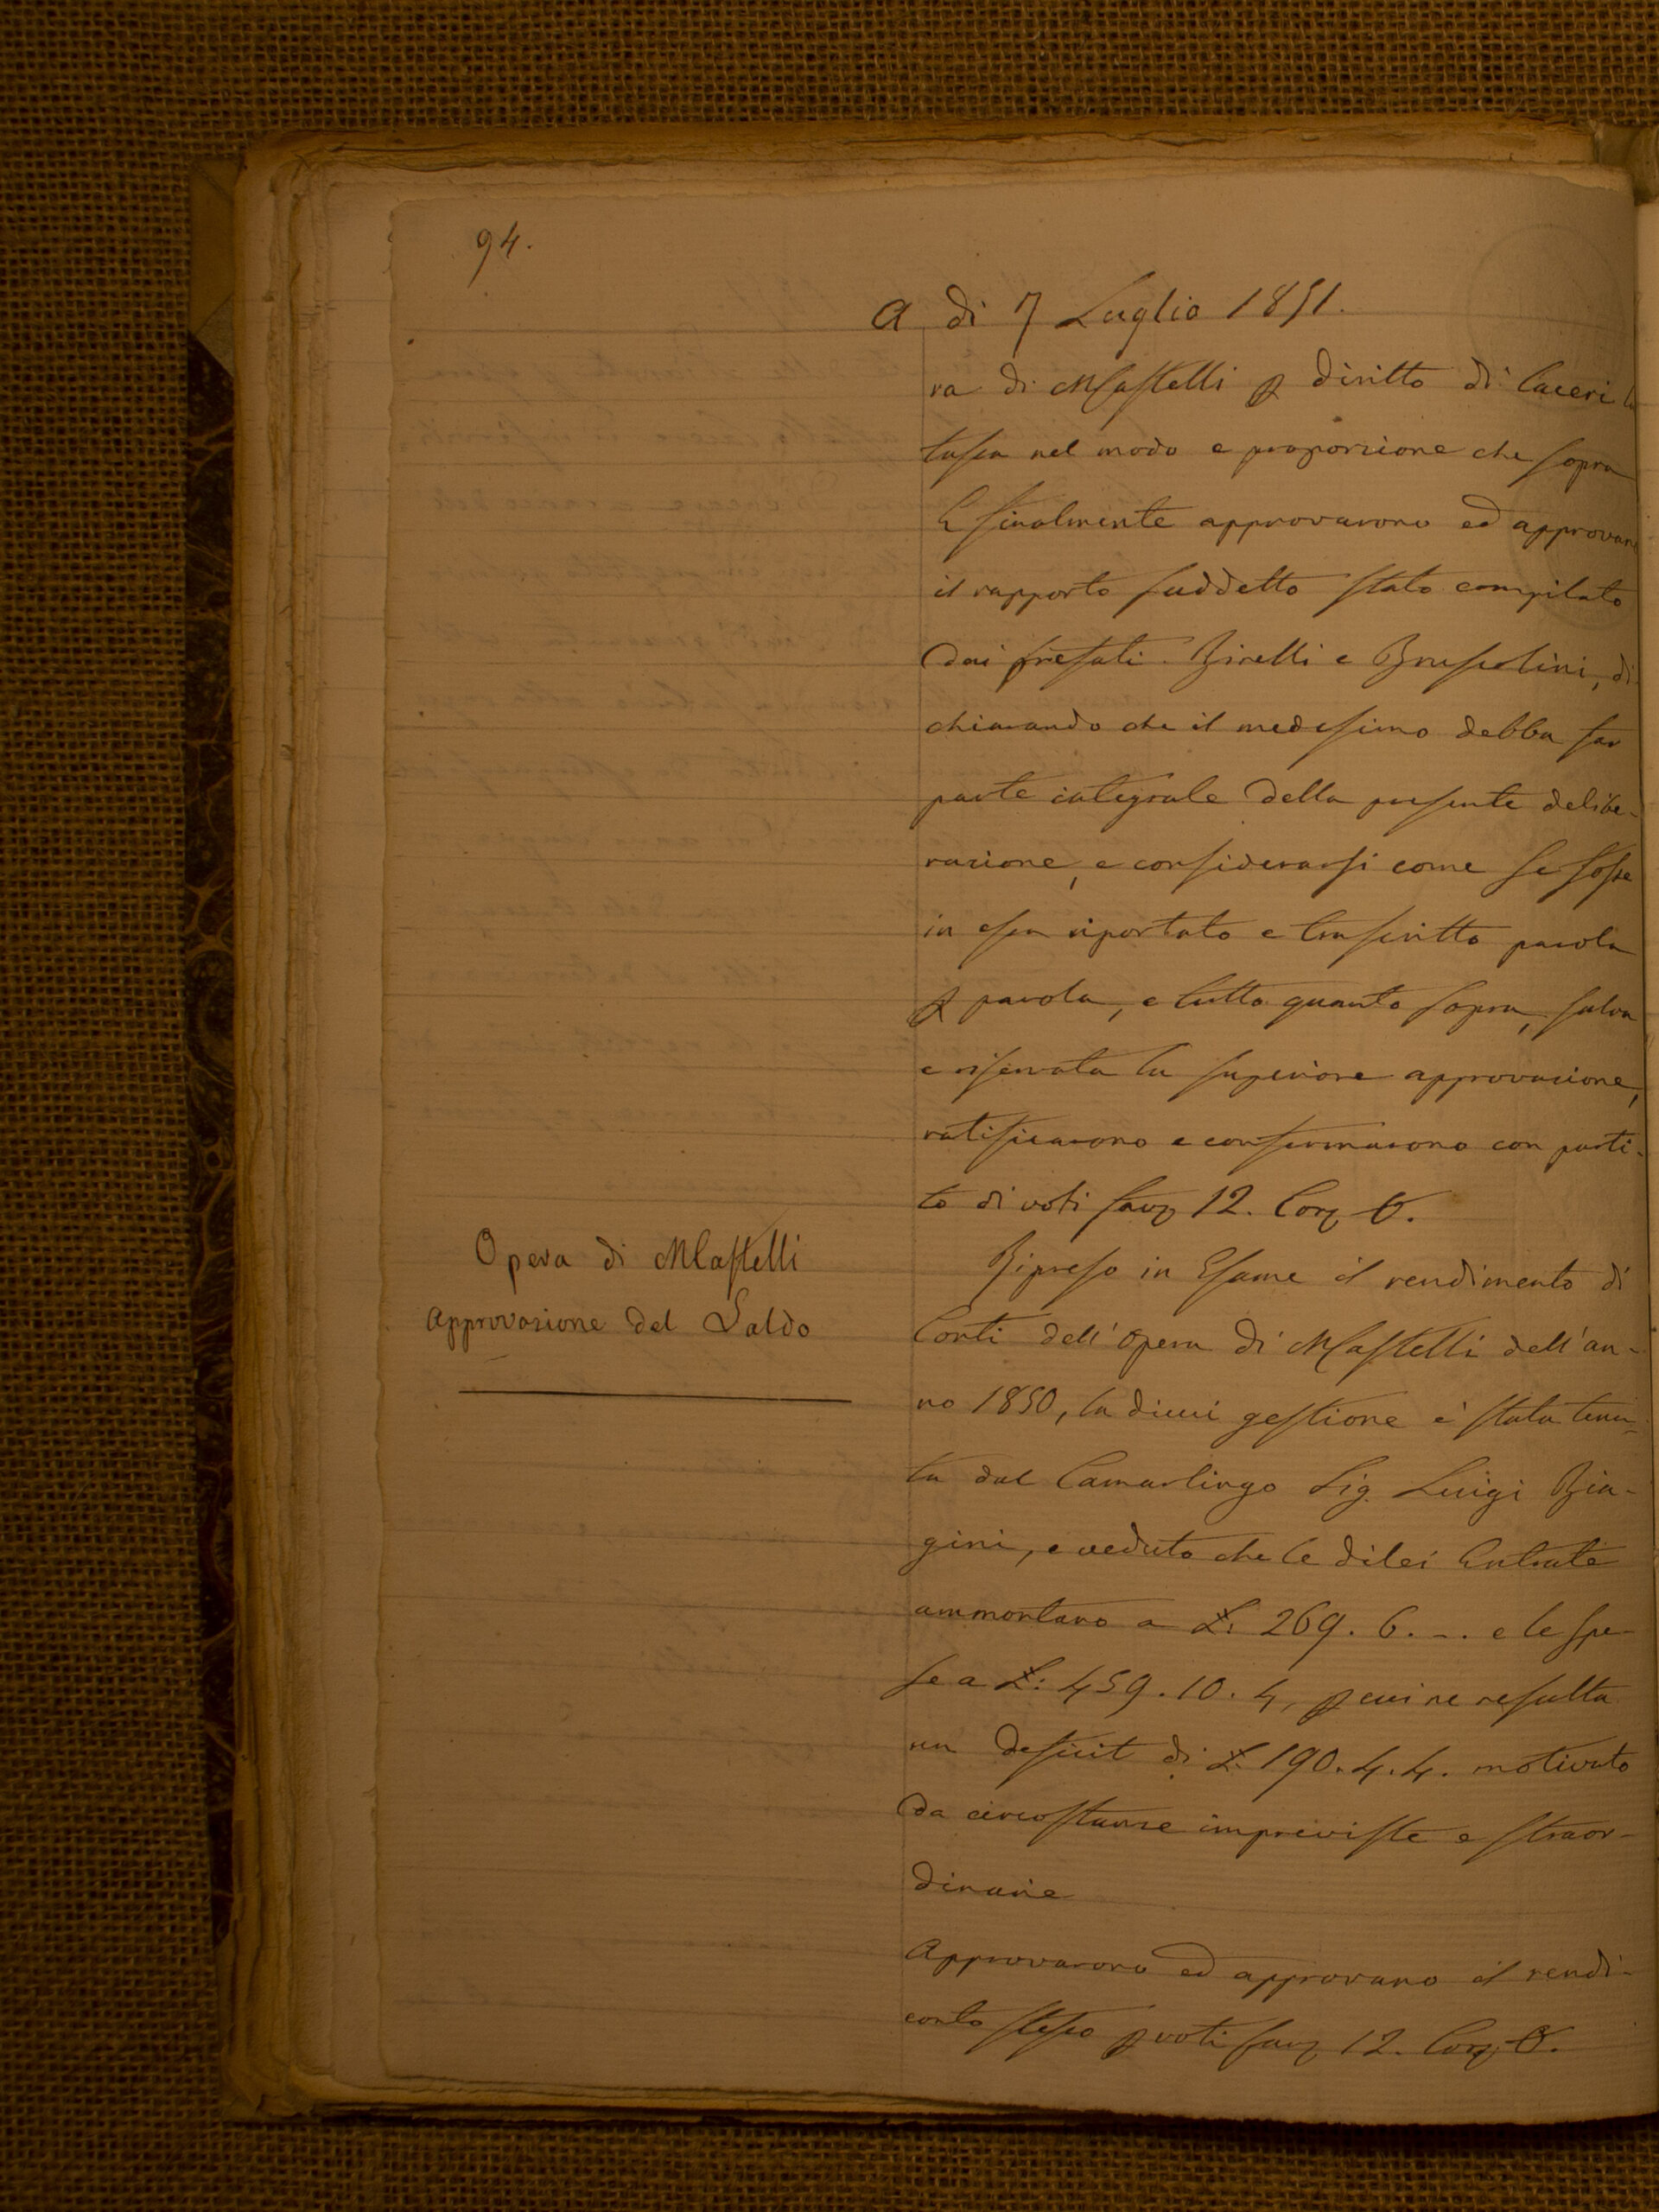 94.
A di 7 Luglio 1851.
ra di Mastelli p diritto di Laceri la
tassa nel modo e proporzione che sopra
E finalmente approvarono ed approvano
il rapporto suddetto stato compilato
dai prefati Birelli e Bruscolini, di
chiarando che il medesimo debba far
parte integrale della presente delibe-
razione, e considerarsi come se fosse
in essa riportato e trascritto parola
p parola, e tutto quanto sopra, salva
e riservata la superiore approvazione,
ratificarono e confermarono con parti-
to di voti fav 12. Con 0.
Opera di Mastelli
Approvazione del Saldo
Ripreso in Esame il rendimento di
Conti dell'Opera di Mastelli dell'an-
no 1850, la dicui gestione è stata tenu-
ta dal Camarlingo Sig. Luigi Bia-
gini, e veduto che le dilei Entrate
ammontano a L: 269. 6. -. e le spe-
se a L: 459. 10. 4, p cui ne resulta
un deficit di L: 190. 4. 4. motivato
da circostanze impreviste e straor-
dinarie
Approvarono ed approvano il rendi-
conto stesso p voti fav 12. Con 0.